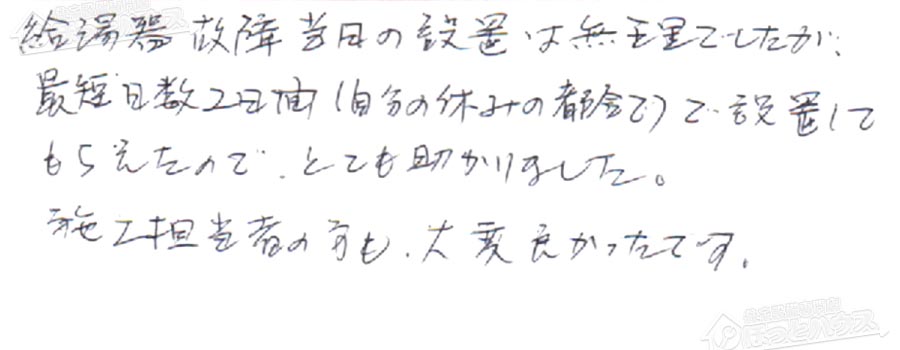 給湯器故障当日の設置は無理でしたが、
最短日数2日間(自分の休みの都合で)で設置して
もらえたので、とても助かりました。
施工担当者の方も、大変良かったです。
ほっとハウス